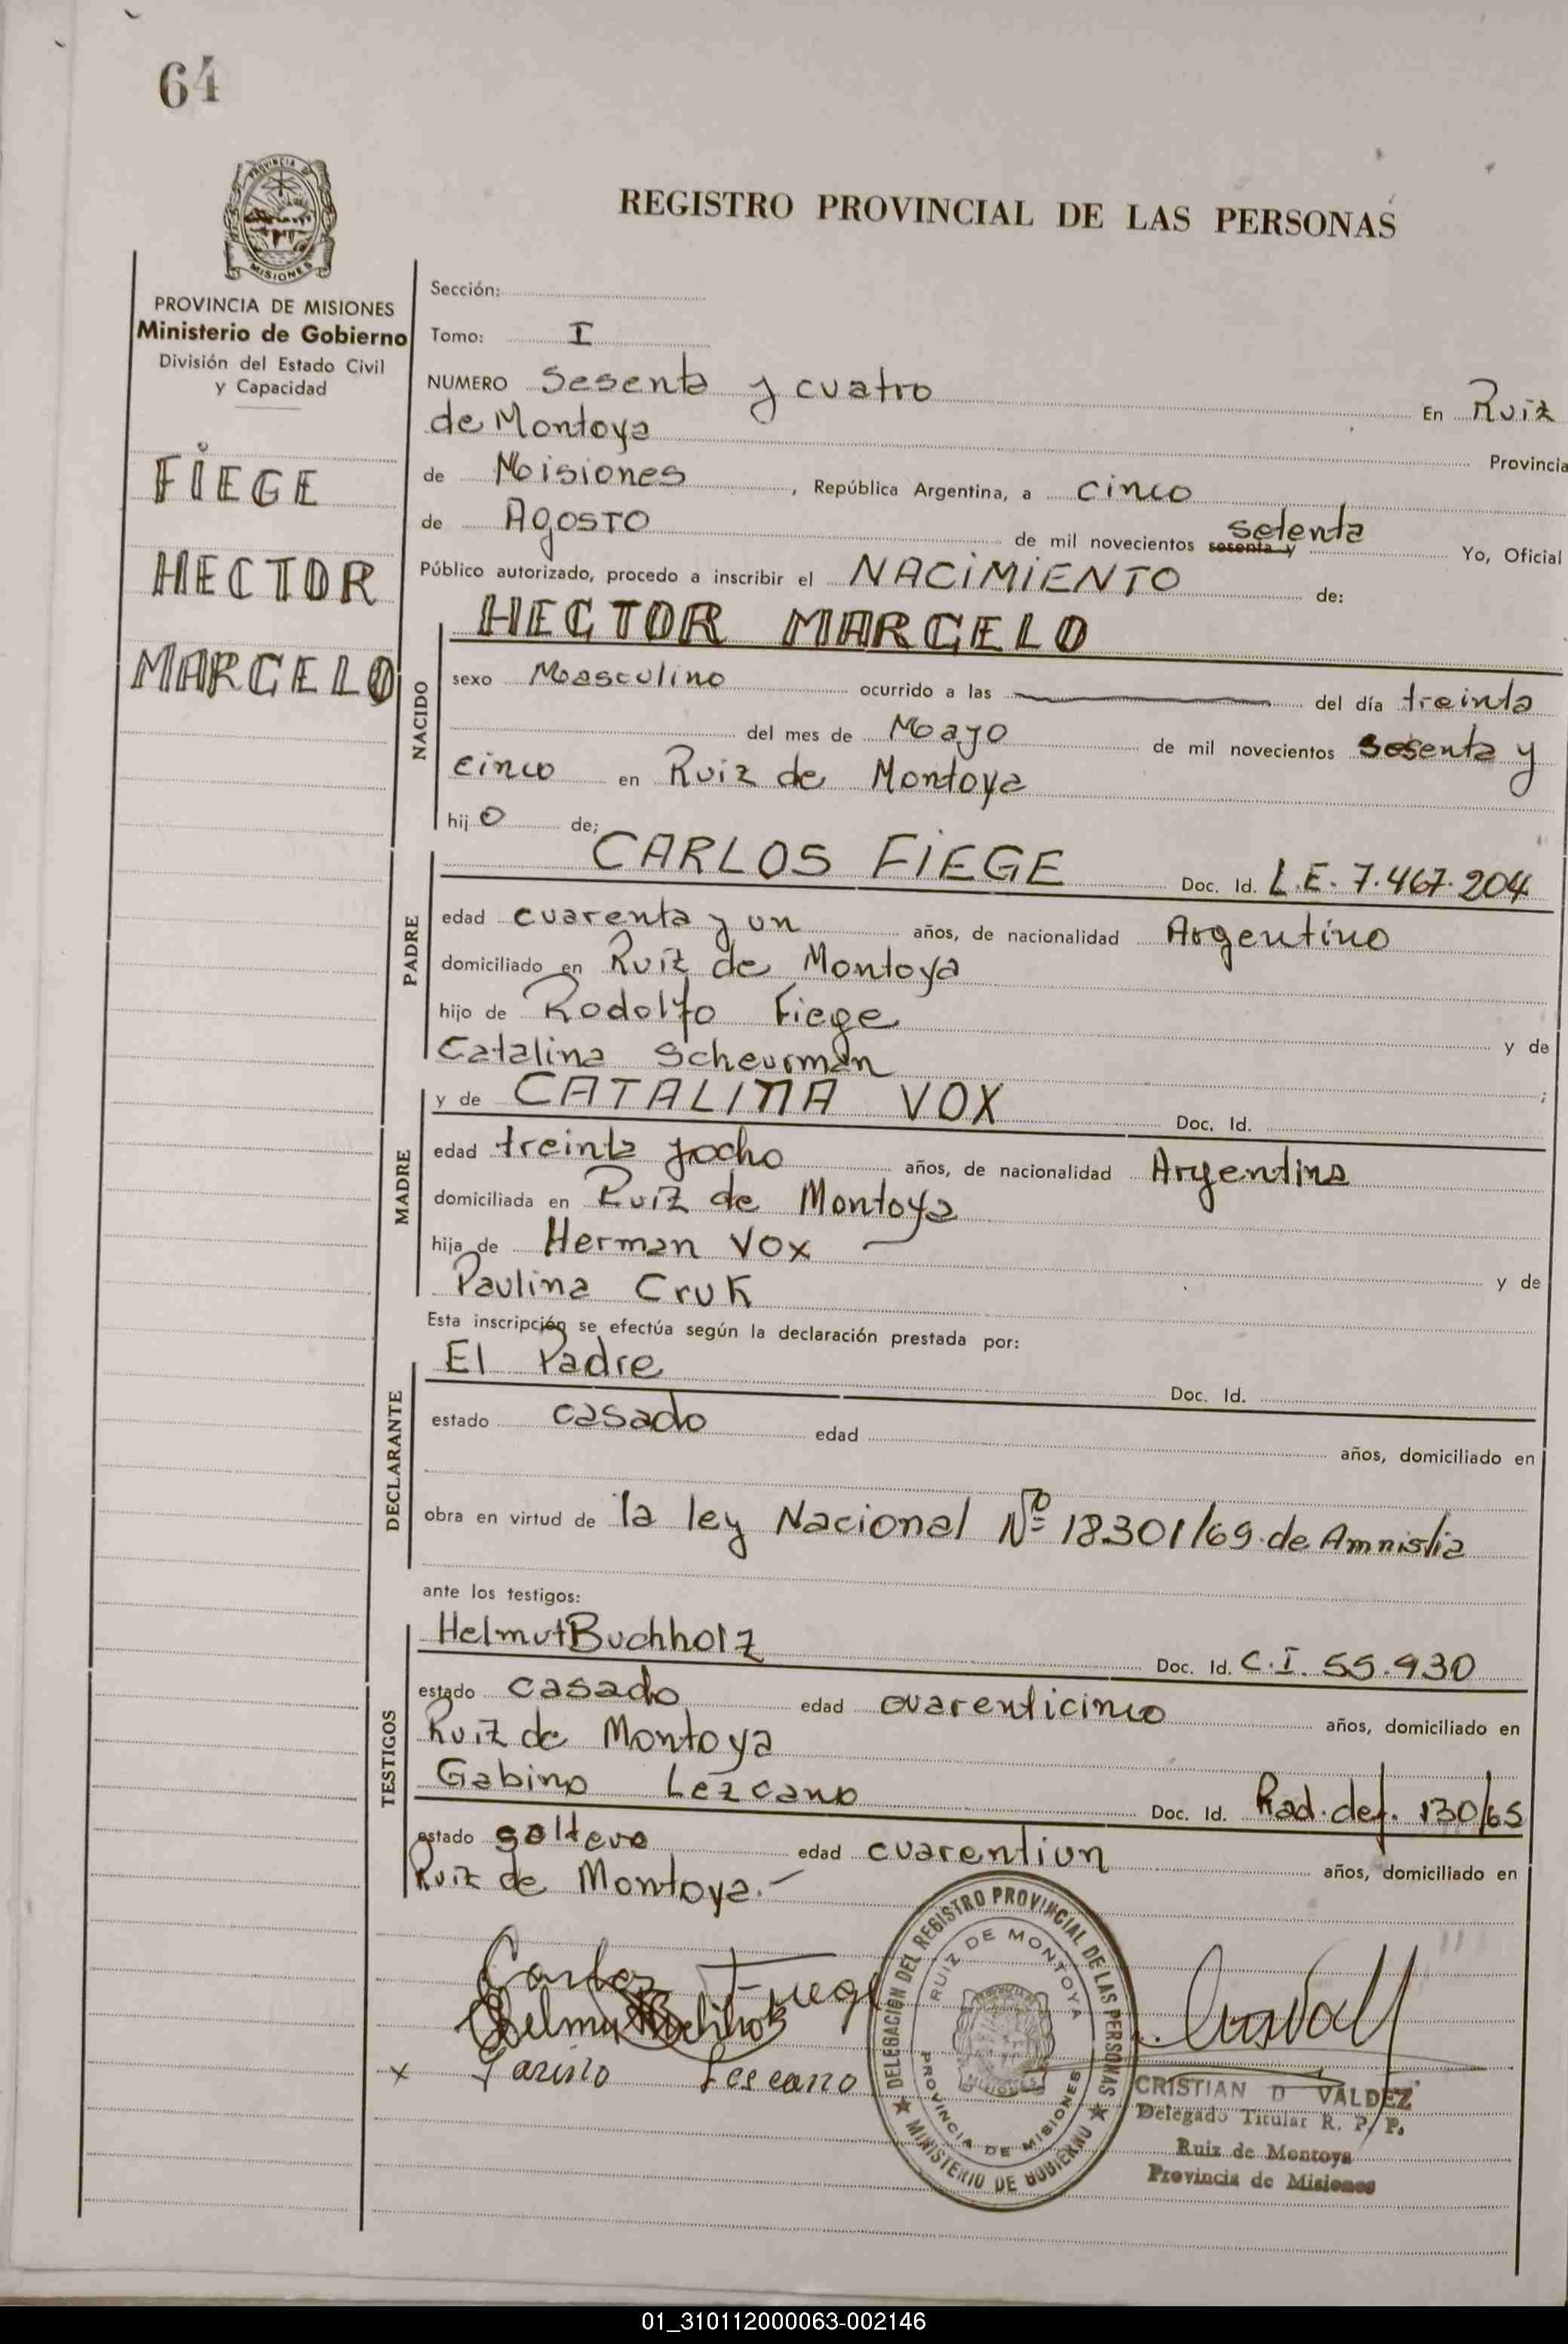 64
PROVINCIA DE
MISIONES
REGISTRO PROVINCIAL DE LAS PERSONAS
PROVINCIA DE MISIONES
Ministerio de Gobierno
División del Estado Civil
y Capacidad
FIEGE
HECTOR
MARCELO
Sección:
Tomo: I
NUMERO Sesenta y cuatro En Ruiz
de Montoya Provincia
de Misiones, República Argentina, a cinco
de Agosto de mil novecientos sesenta y setenta Yo, Oficial
Público autorizado, procedo a inscribir el NACIMIENTO de:
NACIDO
HECTOR MARCELO
sexo Masculino ocurrido a las del día treinta
del mes de Mayo de mil novecientos sesenta y
cinco en Ruiz de Montoya
hijo de;
PADRE
CARLOS FIEGE Doc. Id. L.E. 7.467.204
edad cuarenta y un años, de nacionalidad Argentino
domiciliado en Ruiz de Montoya
hijo de Rodolfo Fiege y de
Catalina Scheurman ;
MADRE
y de CATALINA VOX Doc. Id.
edad treinta y ocho años, de nacionalidad Argentina
domiciliada en Ruiz de Montoya
hija de Herman Vox y de
Paulina Cruk
Esta inscripción se efectúa según la declaración prestada por:
DECLARANTE
El Padre Doc. Id.
estado casado edad años, domiciliado en
obra en virtud de la ley Nacional Nº 18.301/69 de Amnistia
ante los testigos:
TESTIGOS
Helmut Buchholz Doc. Id. C.I. 55.930
estado casado edad cuarenticinco años, domiciliado en
Ruiz de Montoya
Gabino Lezcano Doc. Id. Rad. def. 130/65
estado soltero edad cuarentiun años, domiciliado en
Ruiz de Montoya.-
Carlos Fiege
Helmut Buchholz
x Gavino Lescano
DELEGACION DEL REGISTRO PROVINCIAL DE LAS PERSONAS
RUIZ DE MONTOYA
PROVINCIA DE MISIONES
MINISTERIO DE GOBIERNO
CRISTIAN D VALDEZ
Delegado Titular R. P. P.
Ruiz de Montoya
Provincia de Misiones
01_310112000063-002146